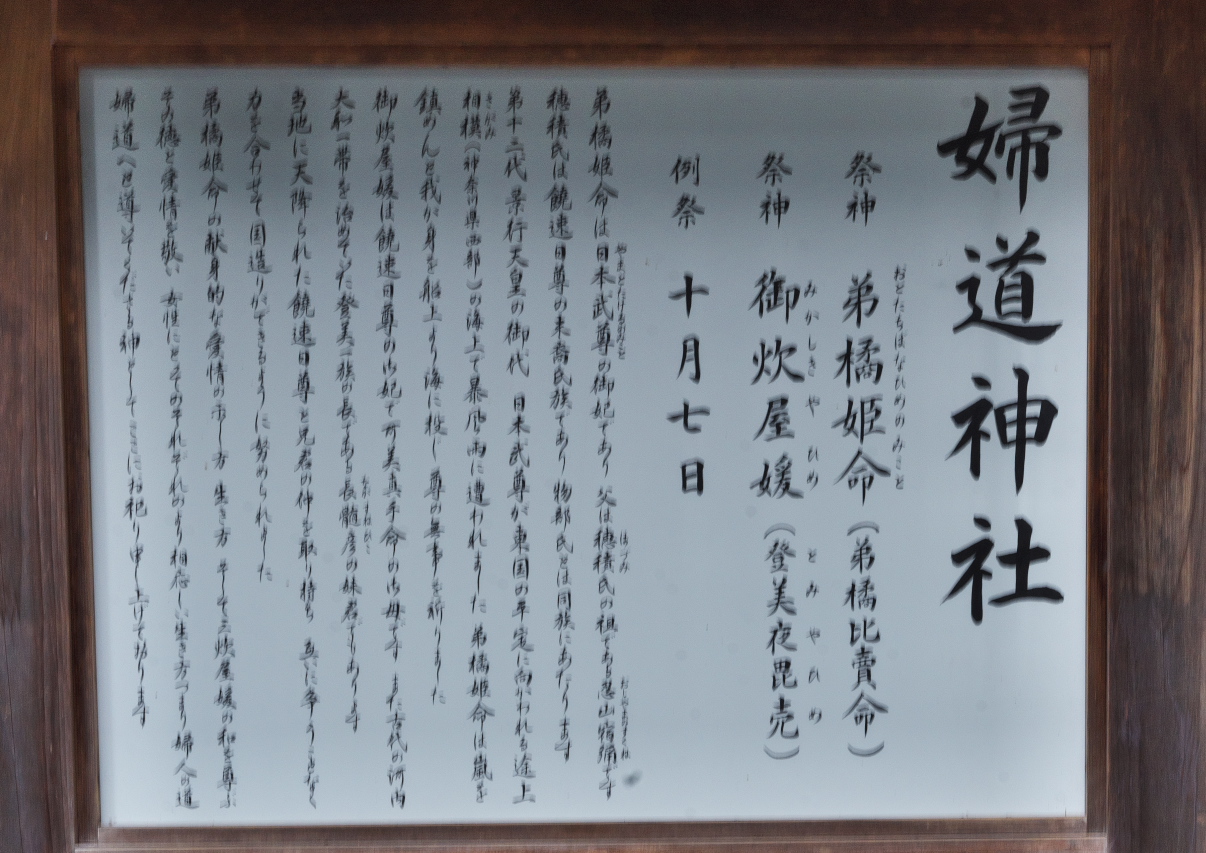 婦道神社
祭神 弟橘姫命（弟橘比賣命）
おとたちはなひめのみこと
祭神 御炊屋媛（登美夜毘売）
みかしきやひめ とみやひめ
例祭 十月七日
弟橘姫命は日本武尊の御妃であり 父は穂積氏の祖である忍山宿祢です
穂積氏は饒速日尊の末裔氏族であり 物部氏とは同族にあたります
第十二代 景行天皇の御代 日本武尊が東国の平定に向かわれる途上
相模（神奈川県西部）の海上で暴風雨に遭われました 弟橘姫命は嵐を
鎮めんと我が身を船上より海に投じ 尊の無事を祈りました
御炊屋媛は饒速日尊の御妃で可美真手命の御母です また古代の河内
大和一帯を治めていた登美一族の長である長髄彦の妹君であります
当地に天降られた饒速日尊と兄君の仲を取り持ち 互いに争うことなく
力を合わせて国造りができるように努められました
弟橘姫命の献身的な愛情の示し方 生き方 そして三炊屋媛の和を尊ぶ
その徳と愛情を敬い 女性にとってのそれぞれのより相応しい生き方つまり 婦人の道
婦道へと導いてくださる神としてここにお祀り申し上げております